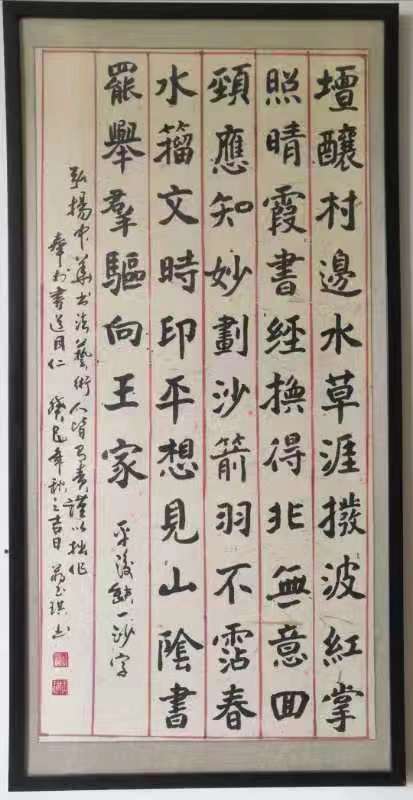 壇釀村邊水草涯撥波紅掌
照晴霞書經換得非無意回
頸應知妙劃沙箭羽不霑春
水籀文時印平想見山陰書
罷舉羣驅向王家 平後缺一沙字
弘揚中華书法藝術人皆有責謹以拙作
奉於書道同仁 癸巳年秋之吉日